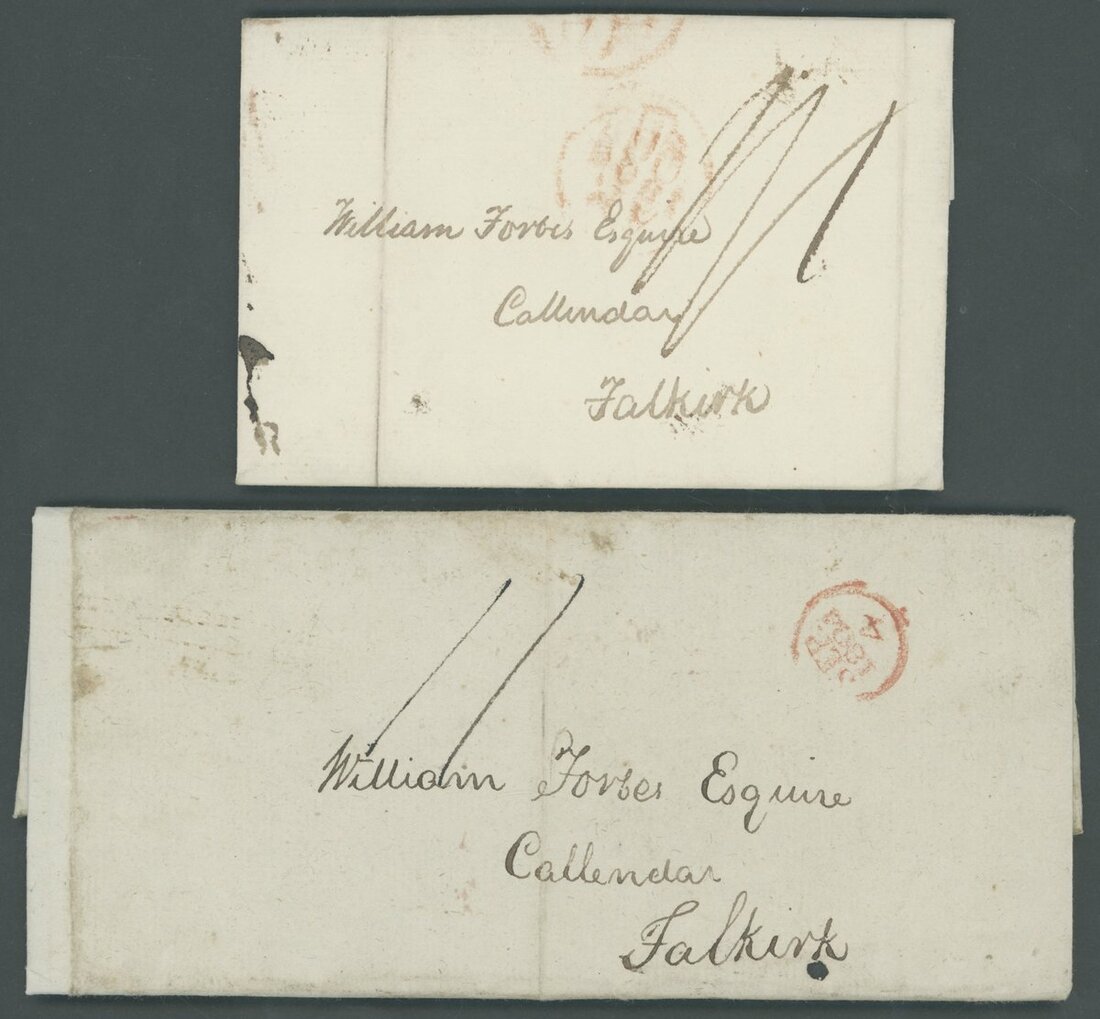 William Forbes Esquire
Callendar
Falkirk
William Forbes Esquire
Callendar
Falkirk